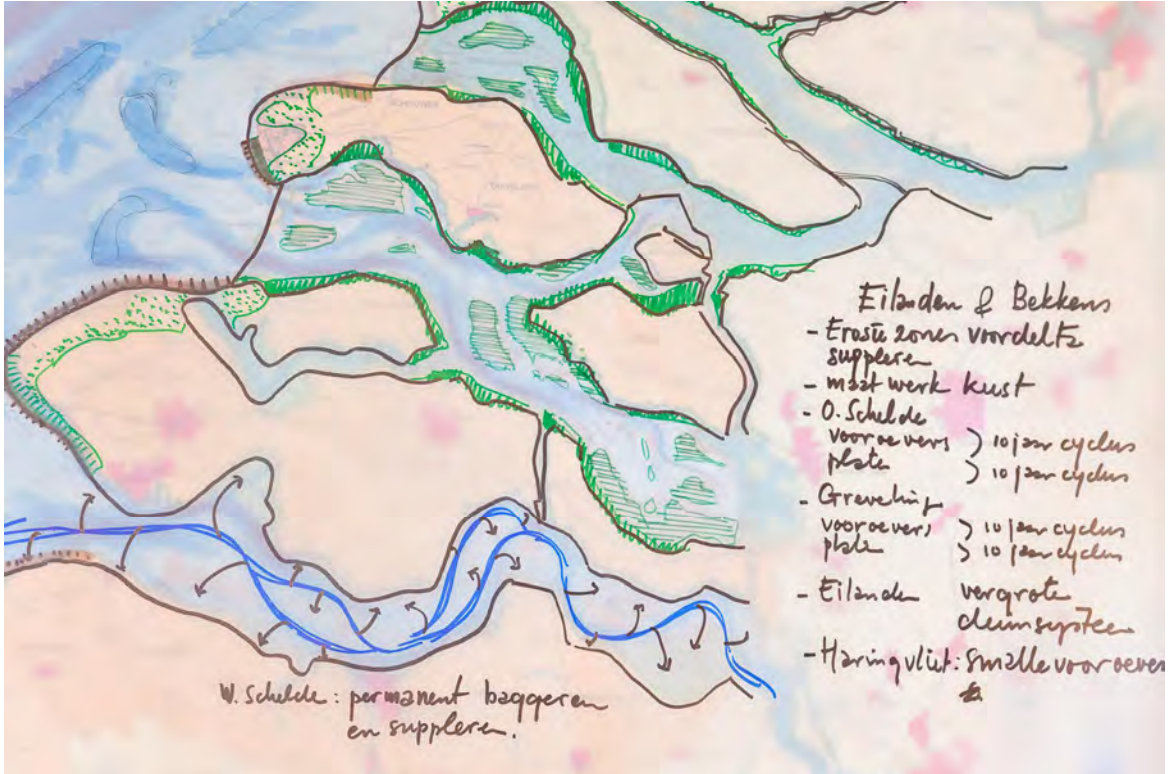 SCHOUWEN
Eilanden & Bekkens
- Erosie zones voordelta
suppleren
- maatwerk kust
- O. Schelde
vooroevers } 10 jaar cyclus
platen } 10 jaar cyclus
- Greveling
vooroevers } 10 jaar cyclus
platen } 10 jaar cyclus
- Eilanden vergrote
duinsysteem
- Haringvliet: smalle vooroever
W. Schelde : permanent baggeren
en suppleren.